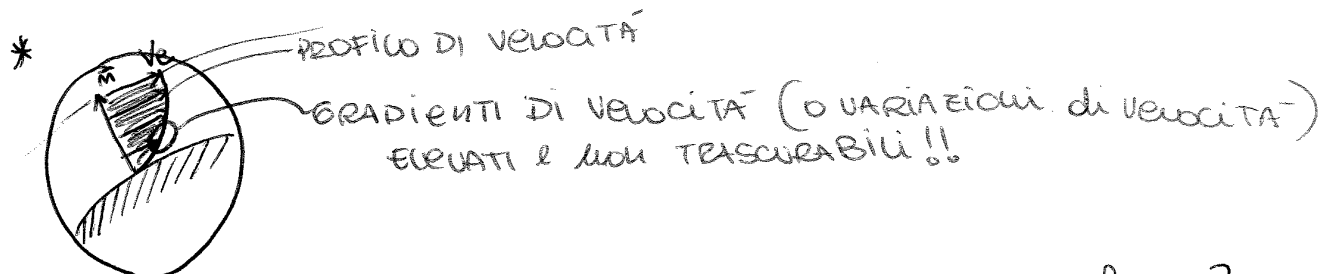 *
n⃗ Ve
PROFILO DI VELOCITÀ
GRADIENTI DI VELOCITÀ (O VARIAZIONI di VELOCITÀ)
ELEVATI e NON TRASCURABILI!!